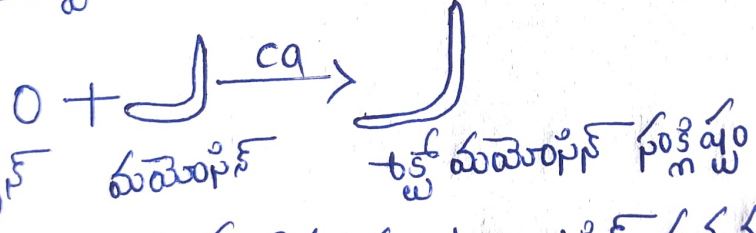 O + ca →
న్ మయోసిన్ ఆక్టో మయోసిన్ సంక్లిష్టం